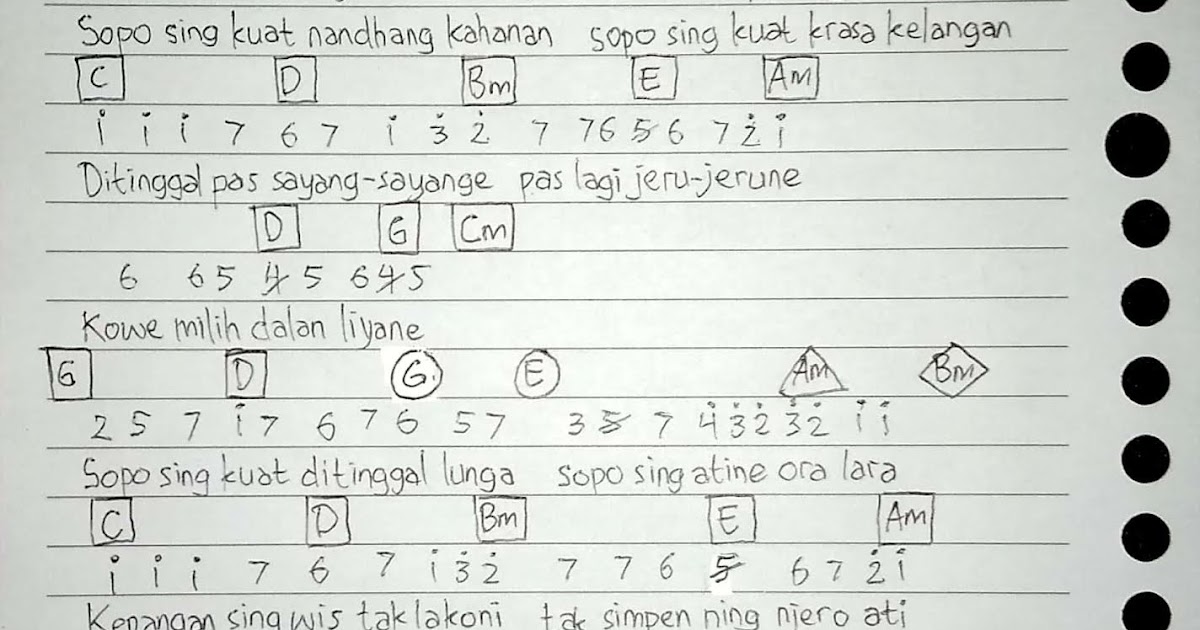 Sopo sing kuat nandhang kahanan sopo sing kuat krasa kelangan
C D Bm E Am
i i i 7 6 7 i 3̇ 2̇ 7 7 6 5̸ 6 7 2̇ i
Ditinggal pas sayang-sayange pas lagi jeru-jerune
D G Cm
6 6 5 4̸ 5 6 4̸ 5
Kowe milih dalan liyane
G D G E Am Bm
2 5 7 i 7 6 7 6 5 7 3 5̸ 7 4̇ 3̇ 2̇ 3̇ 2̇ i i
Sopo sing kuat ditinggal lunga sopo sing atine ora lara
C D Bm E Am
i i i 7 6 7 i 3̇ 2̇ 7 7 6 5̸ 6 7 2̇ i
Kenangan sing wis tak lakoni tak simpen ning njero ati